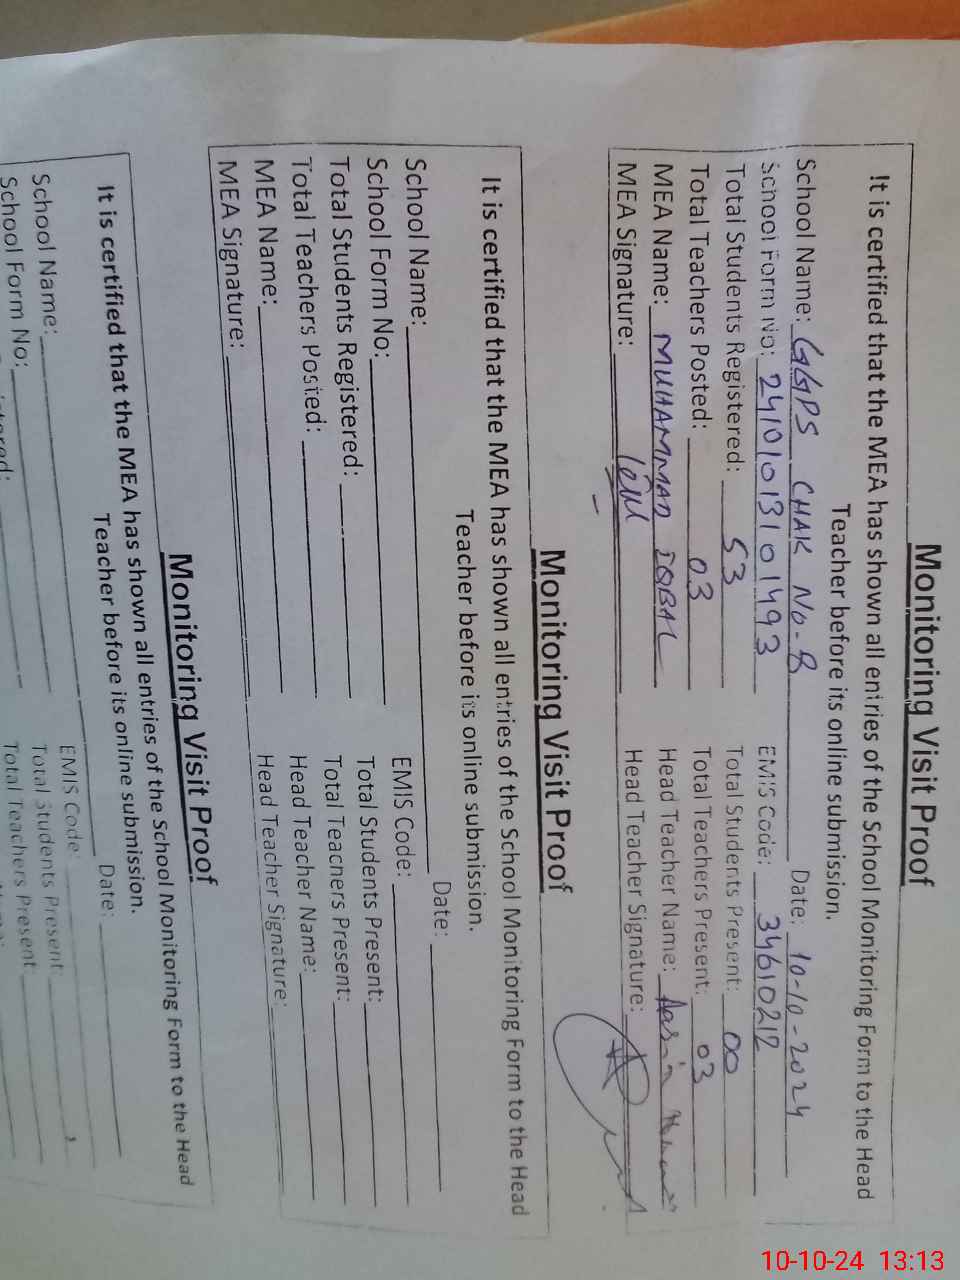 Monitoring Visit Proof
It is certified that the MEA has shown all entries of the School Monitoring Form to the Head
Teacher before its online submission.
School Name: GGPS CHAK NO-8 Date: 10-10-2024
School Form No: 24101013101493 EMIS Code: 34610212
Total Students Registered: 53 Total Students Present: 00
Total Teachers Posted: 03 Total Teachers Present: 03
MEA Name: MUHAMMAD IQBAL Head Teacher Name:
MEA Signature: Head Teacher Signature:
Monitoring Visit Proof
It is certified that the MEA has shown all entries of the School Monitoring Form to the Head
Teacher before its online submission.
School Name: Date:
School Form No: EMIS Code:
Total Students Registered: Total Students Present:
Total Teachers Posted: Total Teachers Present:
MEA Name: Head Teacher Name:
MEA Signature: Head Teacher Signature:
Monitoring Visit Proof
It is certified that the MEA has shown all entries of the School Monitoring Form to the Head
Teacher before its online submission.
School Name: Date:
School Form No: EMIS Code:
Total Students Present:
Total Teachers Present:
10-10-24 13:13